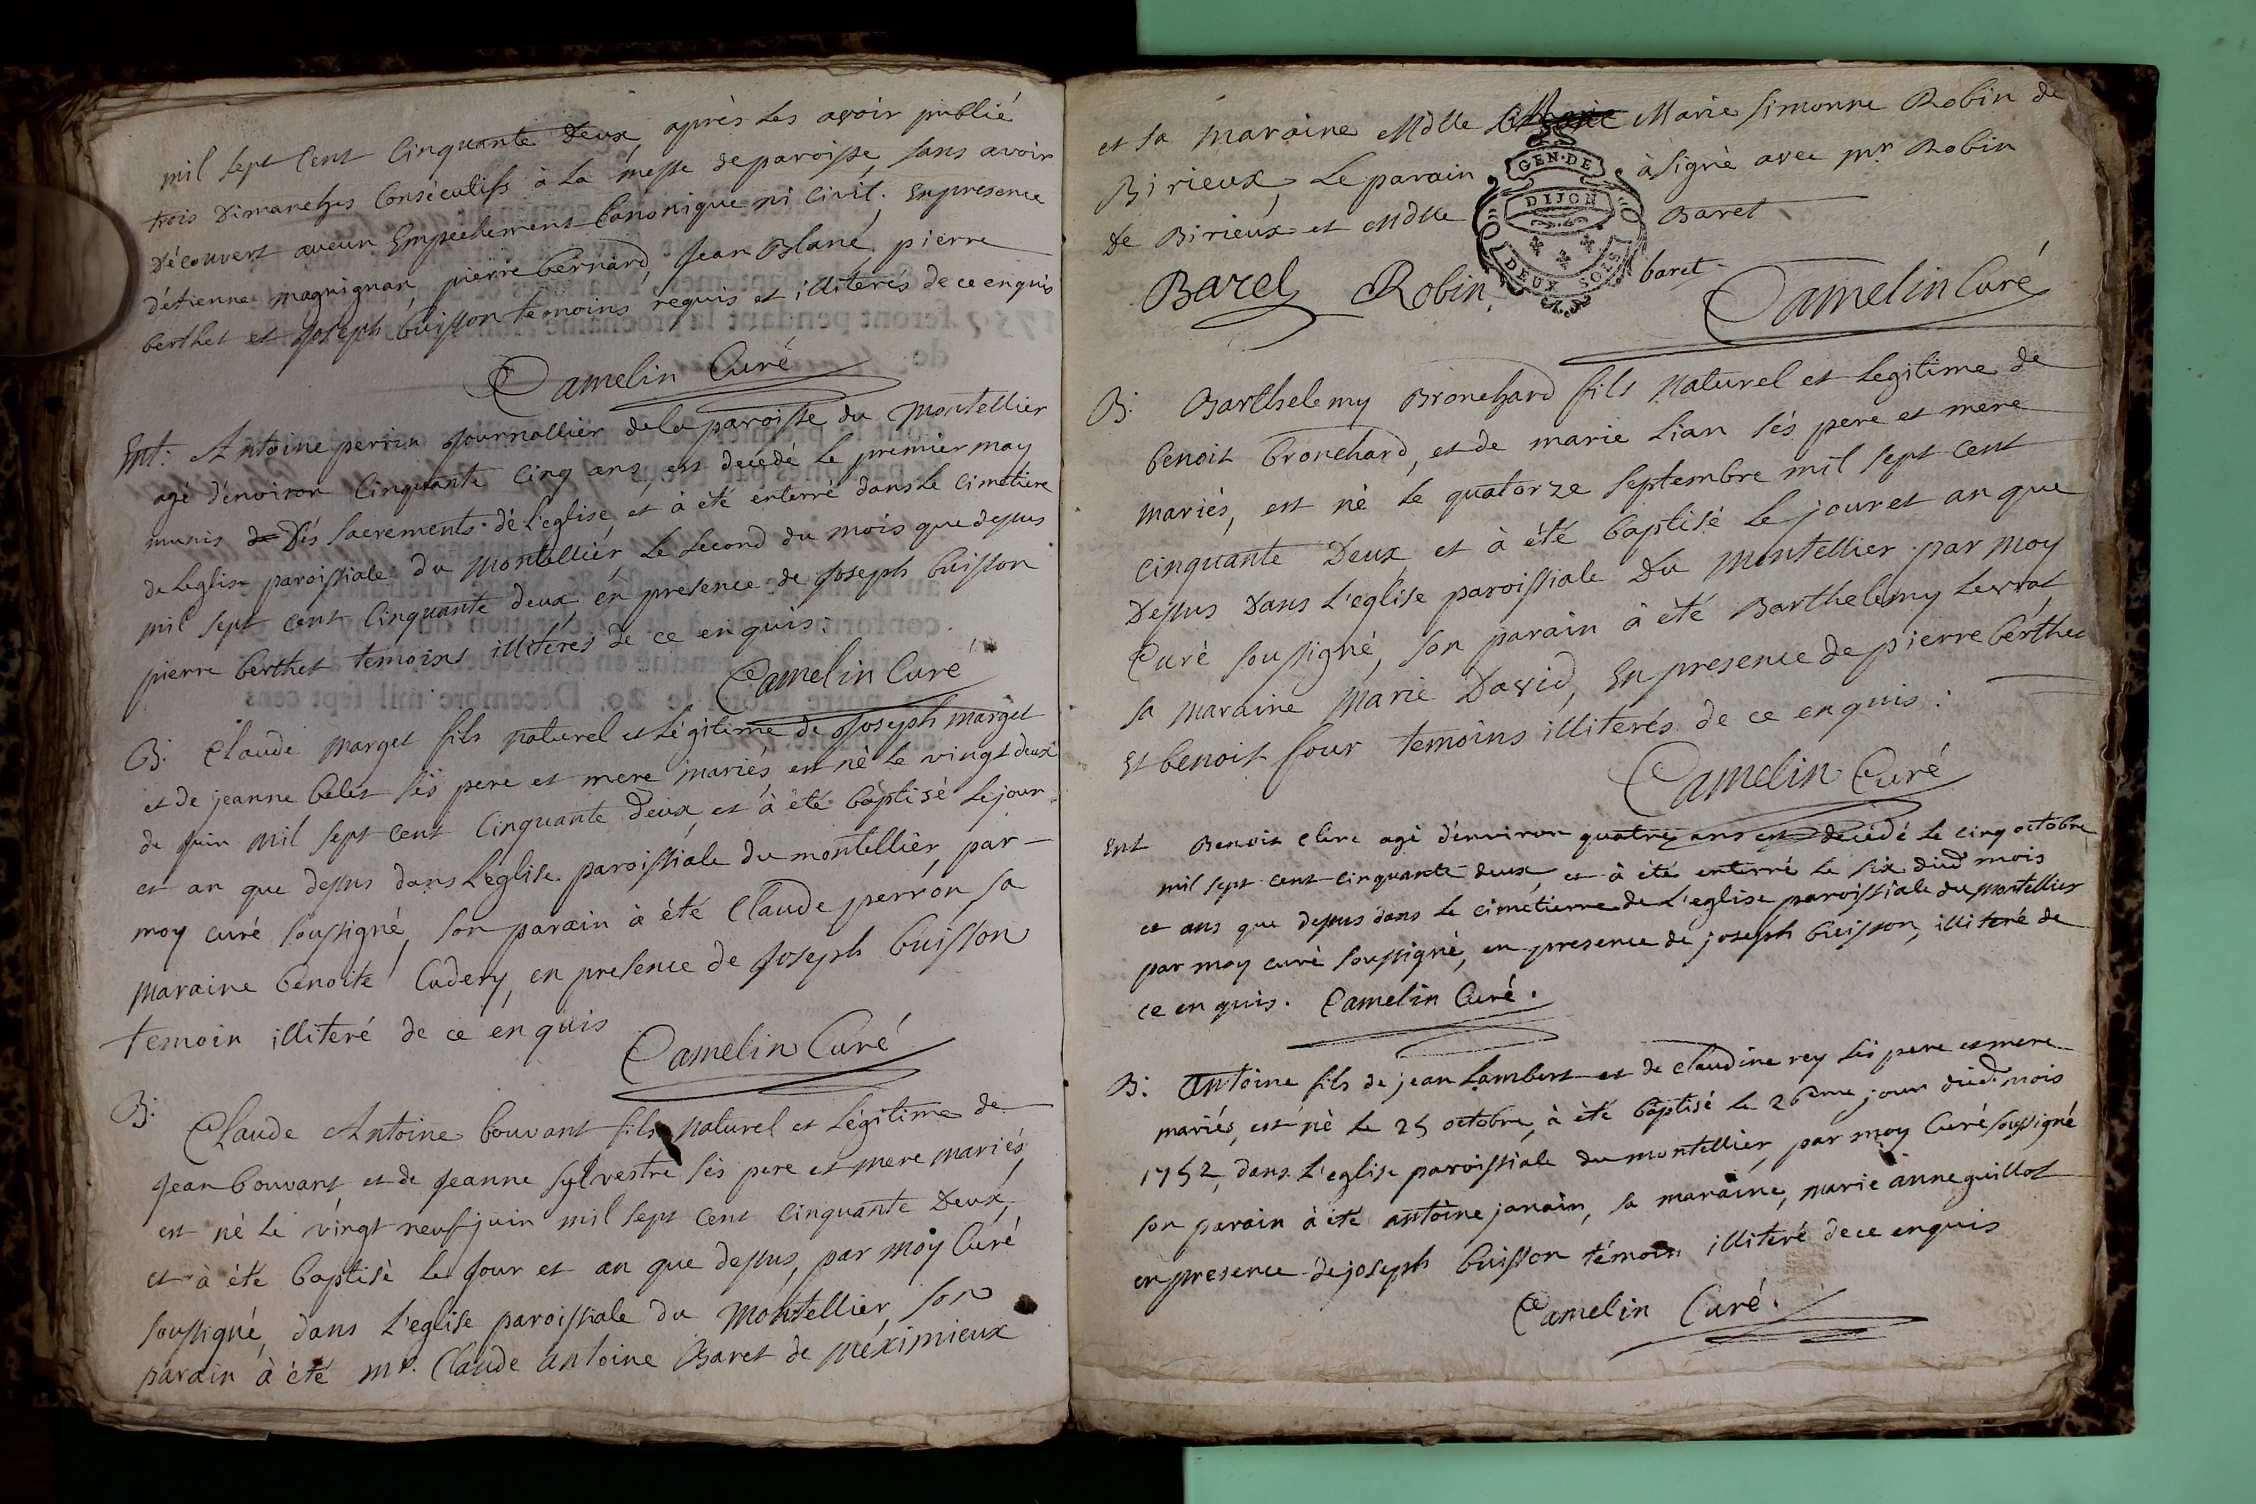 mil sept Cent Cinquante Deux, après les avoir publié
trois Dimanches Consécutifs à la messe de paroisse, sans avoir
découvert aucun Empechement Canonique ni Civil. En presence
d'étienne magnignan, pierre bernard, Jean Blanc, pierre
berthet et Joseph buisson temoins requis et illiterés de ce enquis
Camelin Curé
Ent: Antoine perrin Journallier de la paroisse du Montellier
agé d'environ Cinquante Cinq ans, est decédé le premier may
munis de Dés sacrements de l'eglise, et à été enterré dans le Cimetiere
de l'eglise paroissiale du Montellier, le second du mois que dessus
mil sept cent Cinquante deux, en presence de Joseph buisson
pierre berthet temoins illiterés de ce enquis:
Camelin Curé
B: Claude marget fils naturel et légitime de Joseph marget
et de jeanne belet sés pere et mere mariés, est né le vingt deux
de juin mil sept cent Cinquante deux, et à été baptisé le jour
et an que dessus dans l'eglise paroissiale du montellier, par
moy curé soussigné, son parain à été Claude perron sa
maraine benoite Cadery, en presence de Joseph buisson
temoin illiteré de ce enquis
Camelin Curé
B: Claude Antoine bouvant fils naturel et légitime de
Jean bouvant, et de Jeanne sylvestre sés pere et mere mariés,
est né le vingt neuf juin mil sept cent cinquante Deux,
et à été baptisé le jour et an que dessus, par moy Curé
soussigné, dans l'eglise paroissiale du Montellier, son
parain à été mr. Claude antoine Baret de méximieux
et sa maraine Mdlle Marie Marie Simonne Robin de
Birieux, Le parain à signé avec mr Robin
De Birieux et Mdlle Baret
GEN·DE
DIJON
DEUX SOLS
Baret Robin baret
Camelin Curé
B: Barthelemy Bronchard fils naturel et legitime de
benoit bronchard, et de marie Lian sés pere et mere
mariés, est né le quatorze septembre mil sept cent
cinquante Deux, et à été baptisé le jour et an que
Dessus Dans l'eglise paroissiale Du Montellier par moy
Curé soussigné, son parain à été Barthelemy Levrat
sa maraine Marie David, En presence de pierre bérthet
Et benoit four temoins illiterés de ce enquis:
Camelin Curé
Ent Benoit Clerc agé d'environ quatre ans est decédé le cinq octobre
mil sept cent cinquante deux, et à été enterré le six dud. mois
et ans que dessus dans le cimetierre de l'eglise paroissiale du montellier
par moy curé soussigné, en presence de joseph buisson, illiteré de
ce enquis. Camelin Curé.
B: Antoine fils de jean Lambert et de Claudine rey sés pere et mere
mariés, est né le 25 octobre, à été baptisé le 26eme jour dud. mois
1752, dans l'eglise paroissiale du montellier, par moy Curé soussigné
son parain à été antoine janain, sa maraine, marie anne guillot
en presence de joseph buisson témoin illiteré de ce enquis
Camelin Curé.